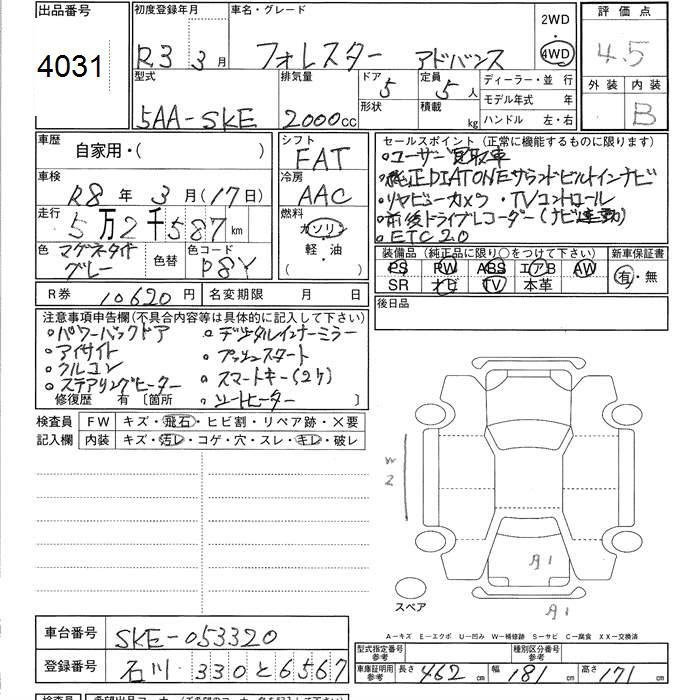 出品番号 初度登録年月 車名・グレード 2WD 評価点
4031 R3 3月 フォレスター アドバンス 4WD 4.5
型式 排気量 ドア 5 定員 5人 ディーラー・並行 外装 内装
5AA-SKE 2000cc 形状 積載 kg モデル年式 年 B
ハンドル 左・右
車歴 自家用・( ) シフト FAT セールスポイント(正常に機能するものに限ります)
車検 R8年 3月(17日) 冷房 AAC
。ユーザー買取車
。純正DIATONEサウンドビルトインナビ
走行 5万2千587km 燃料 ガソリン 軽・油 ( )
。リヤビューカメラ・TVコントロール
。前後ドライブレコーダー(ナビ連動)
。ETC2.0
色 マグネタイトグレー 色替 色コード P8Y
装備品(純正品に限り○をつけて下さい) 新車保証書
PS PW ABS エアB AW 有・無
SR ナビ TV 本革
R券 10620円 名変期限 月 日
後日品
注意事項申告欄(不具合内容等は具体的に記入して下さい)
。パワーバックドア 。デジタルインナーミラー
。アイサイト 。プッシュスタート
。クルコン 。スマートキー(2ケ)
。ステアリングヒーター 。シートヒーター
修復歴 有〔箇所 〕
検査員 FW キズ・飛石・ヒビ割・リペア跡・×要
記入欄 内装 キズ・汚レ・コゲ・穴・スレ・キレ・破レ
W2
A1
A1
スペア
A―キズ E―エクボ U―凹み W―補修跡 S―サビ C―腐食 XX―交換済
車台番号 SKE-053320
型式指定番号 参考 種別区分番号 参考
登録番号 石川 330 と 6567
車庫証明用 参考 長さ 462cm 幅 181cm 高さ 171cm